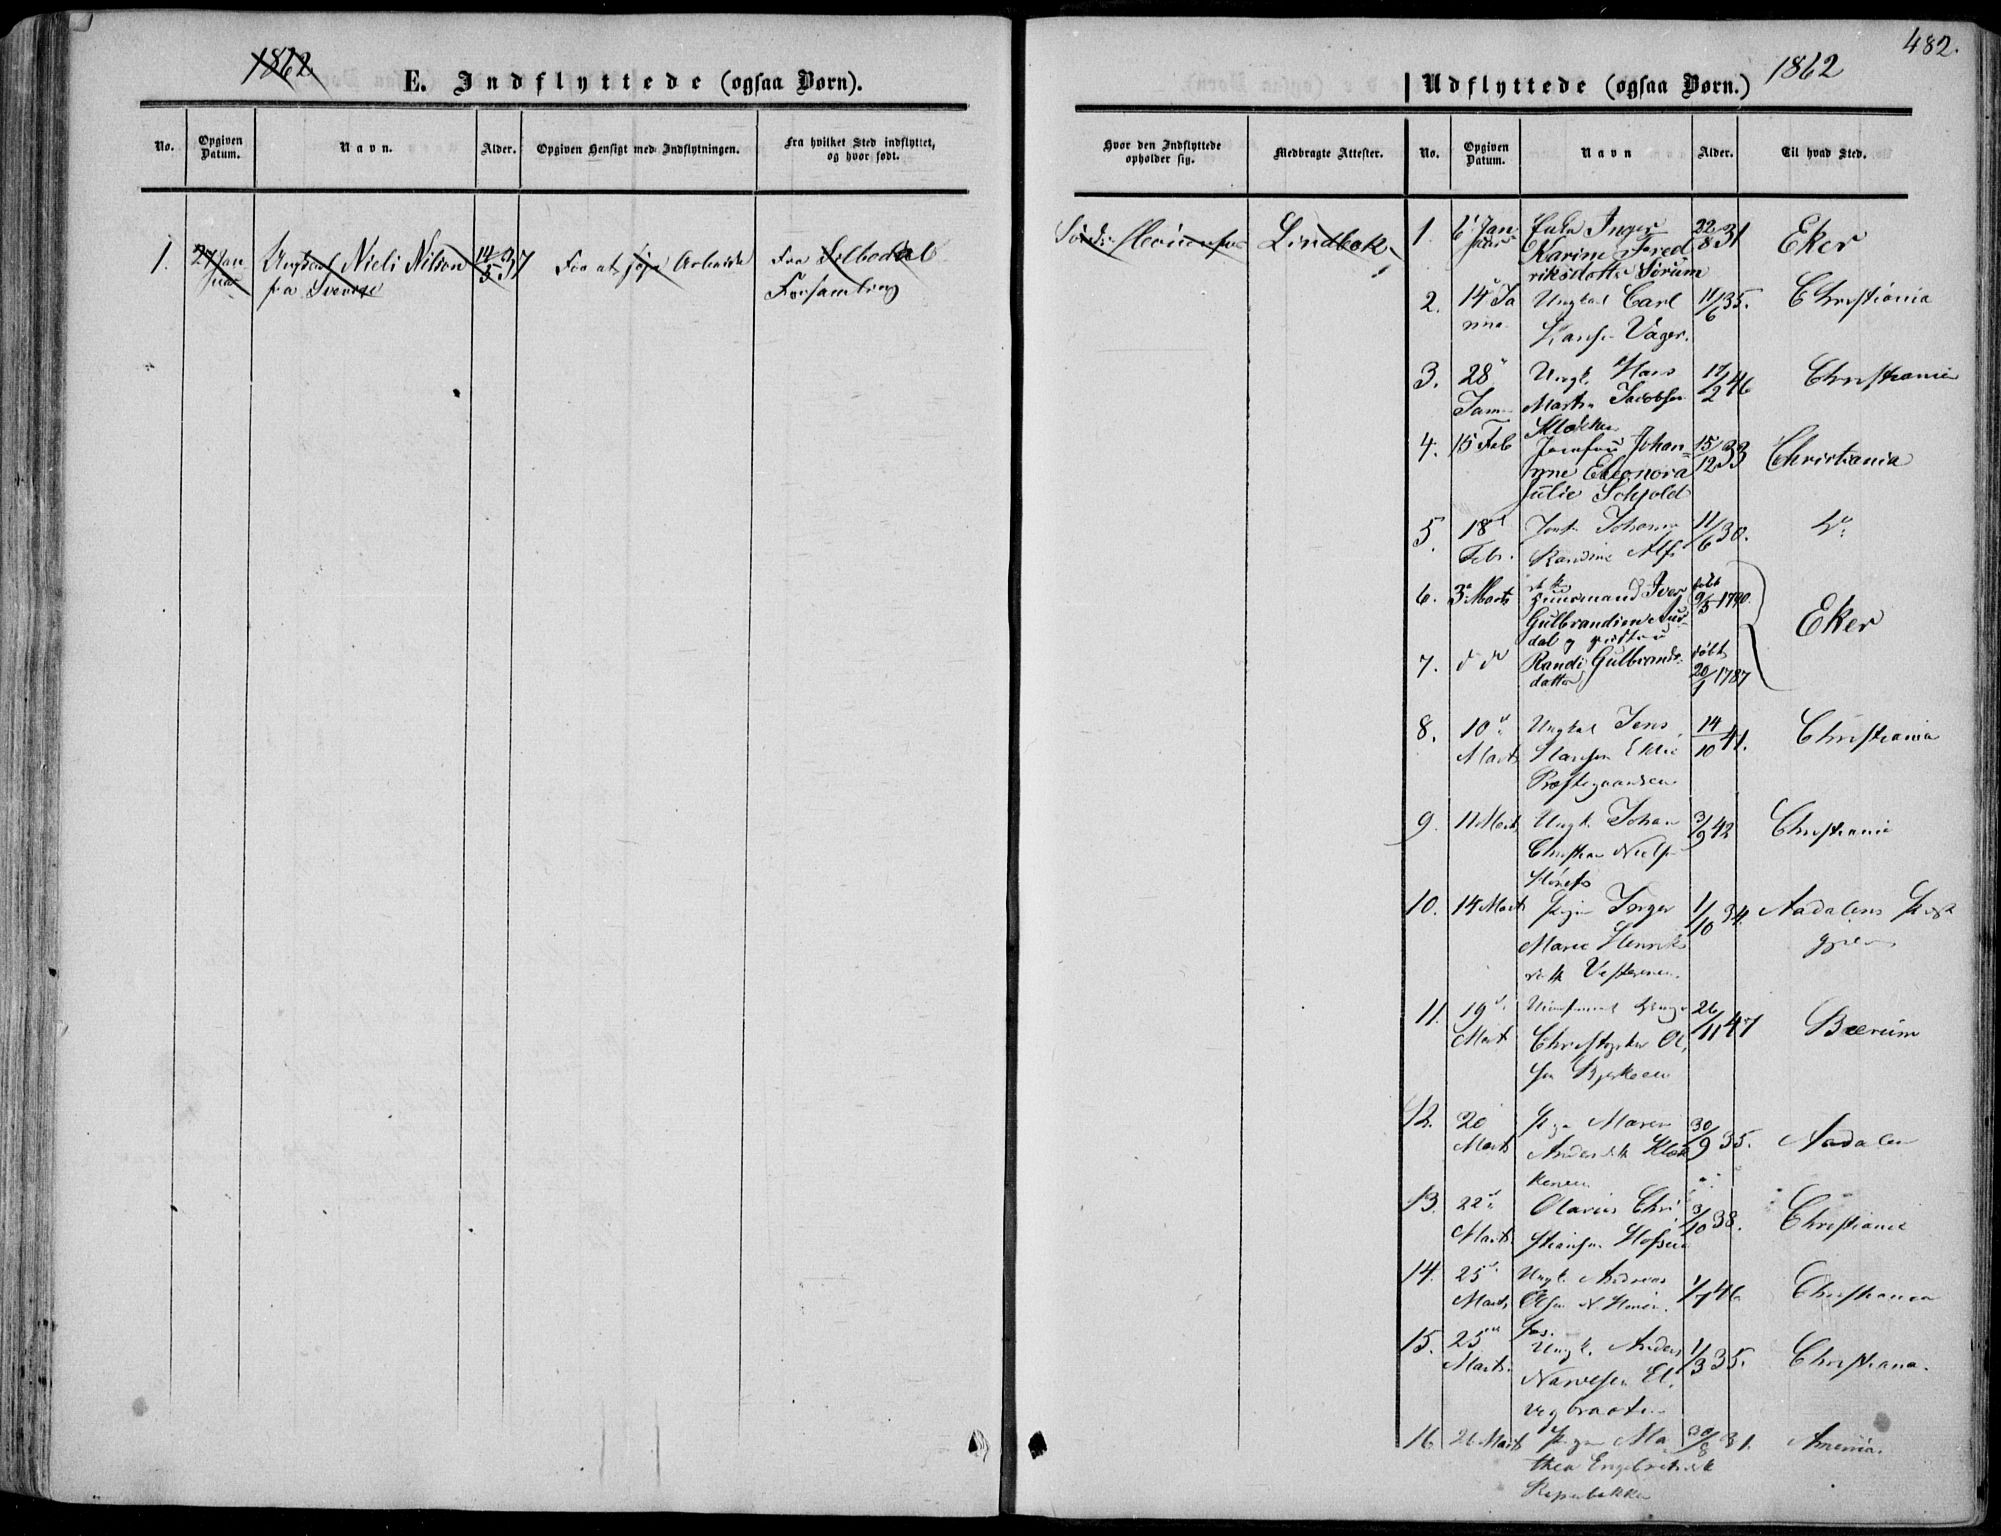 1862
E. Indflyttede (ogsaa Børn).
No.
Opgiven Datum.
Navn.
Alder.
Opgiven Hensigt med Indflytningen.
Fra hvilket Sted indflyttet, og hvor født.
1.
27 Jan
Ungkarl Niels Nilson
fra Sverige
14/5 37
For at søge Arbeide
Fra Silbodal
Forsamling
482.
Udflyttede (ogsaa Børn.)
1862
Hvor den Indflyttede opholder sig.
Medbragte Attester.
No.
Opgiven Datum.
Navn
Alder.
Til hvad Sted.
Lindbek
1.
6 Jan
Enke Inger
Karine Fred
riksdatter Sørum
22/8 31
Eker
2.
14 Ja
Ungkarl Carl
Hansen Vager.
11/6 35.
Christiania
3.
28
Jan
Ungk. Hans
Martin Jacobsen
Klækken
17/2 46
Christiania
4.
15 Feb
Jomfru Johan
ne Eleonora
Julie Schjold
15/12 33
Christiania
5.
18
Febr.
Johanne
Randine Alf
11/6 30.
do
6.
3 Marts
Huusmand Iver
Gulbrandsen
dal og
født
9/5 1790.
Eker
7.
d d
Randi Gulbrands
datter
født
20/1 1787
8.
10
Marts
Ungkarl Jens
Hansen
Præstegaardseie
14/10 41.
Christiania
9.
11 Marts
Ungk. Johan
Christian Niels
3/9 42
Christiania
10.
14 Marts
Pige Inger
Marie Henriks
datt
1/10 34.
Aadalens Præst
gjeld
11.
19
Marts
Christopher Ol
sen Bjerkeeie
26/11 47
Bærum
12.
20
Marts
Pige Maren
Andersdatt Klæk
keneie
30/9 35.
Aadalen
13.
22
Marts
Olavus Chri
stiansen Hofseie
3/10 38.
Christiania
14.
25
Marts
Ungk. Andreas
Olsen N. Høne
fos.
1/7 46
Christiania
15.
25
Marts.
Ungk. Anders
Narvesen El
vigbraaten
1/3 35.
Christiania.
16
26 Marts
Pige Ma
thea Engebretsdatt
30/8 31.
Amerika.